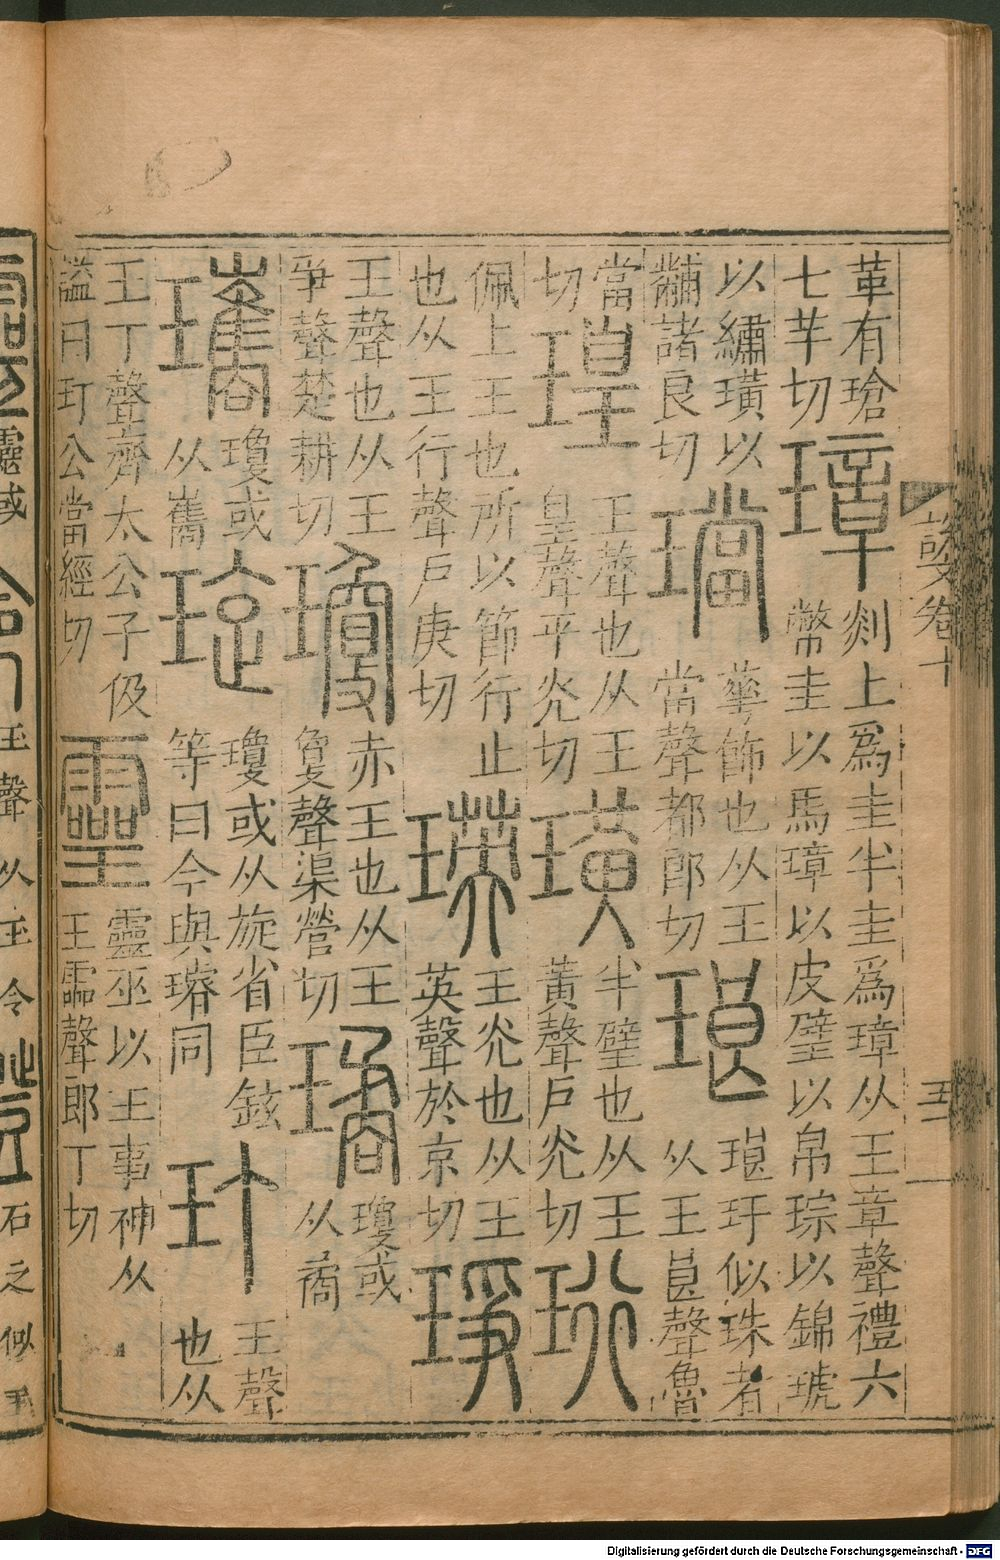 革有瑲
七羊切
璋
剡上爲圭半圭爲璋从王章聲禮六
幣圭以馬璋以皮璧以帛琮以錦琥
以繡璜以
黼諸良切
璫
華飾也从王
當聲都郎切
琅
琅玕似珠者
从王良聲魯
當
切
瑝
王聲也从王
皇聲乎光切
璜
半璧也从王
黃聲戶光切
珩
佩上王也所以節行止
也从王行聲戶庚切
瑛
王光也从王
英聲於京切
琤
王聲也从王
爭聲楚耕切
瓊
赤王也从王
敻聲渠營切
璚
瓊或
从矞
瓗
瓊或
从巂
琁
瓊或从旋省臣鉉
等曰今與璿同
玎
王聲
也从
王丁聲齊太公子伋
謚曰玎公當經切
靈
靈巫以王事神从
王霝聲郎丁切
說文卷十
五
Digitalisierung gefördert durch die Deutsche Forschungsgemeinschaft - DFG